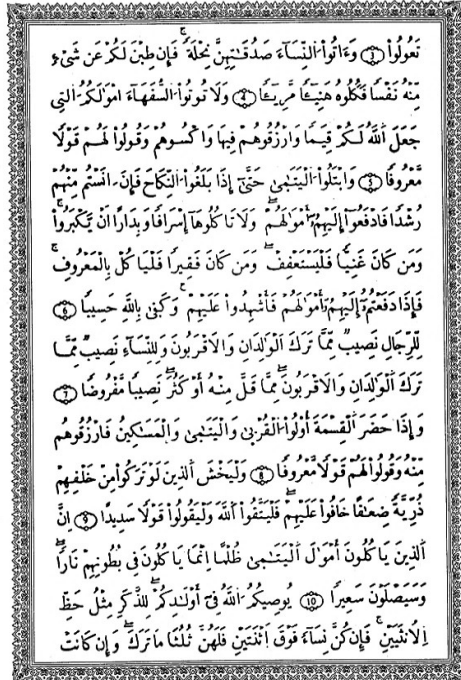 تَعُولُواْ ٣ وَءَاتُواْ اَلنِّسَآءَ صَدُقَٰتِهِنَّ نِحْلَةً فَإِن طِبْنَ لَكُمْ عَن شَےْءٍ
مِّنْهُ نَفْسًا فَكُلُوهُ هَنِيٓـًٔا مَّرِيٓـًٔا ٤ وَلَا تُوتُواْ اَلسُّفَهَآءَ امْوَٰلَكُمُ اَلتِى
جَعَلَ اَللَّهُ لَكُمْ قِيَمًا وَارْزُقُوهُمْ فِيهَا وَاكْسُوهُمْ وَقُولُواْ لَهُمْ قَوْلًا
مَّعْرُوفًا ٥ وَابْتَلُواْ اَلْيَتَٰمَىٰ حَتَّىٰٓ إِذَا بَلَغُواْ اَلنِّكَاحَ فَإِنَ اٰنَسْتُم مِّنْهُمْ
رُشْدًا فَادْفَعُوٓاْ إِلَيْهِمُۥٓ أَمْوَٰلَهُمْ وَلَا تَاكُلُوهَآ إِسْرَافًا وَبِدَارًا اَنْ يَّكْبَرُواْ
وَمَن كَانَ غَنِيًّا فَلْيَسْتَعْفِفْ وَمَن كَانَ فَقِيرًا فَلْيَاكُلْ بِالْمَعْرُوفِ
فَإِذَا دَفَعْتُمُۥٓ إِلَيْهِمُۥٓ أَمْوَٰلَهُمْ فَأَشْهِدُواْ عَلَيْهِمْ وَكَفَىٰ بِاللَّهِ حَسِيبًا ٦
لِّلرِّجَالِ نَصِيبٌ مِّمَّا تَرَكَ اَلْوَٰلِدَانِ وَالَاقْرَبُونَ وَلِلنِّسَآءِ نَصِيبٌ مِّمَّا
تَرَكَ اَلْوَٰلِدَانِ وَالَاقْرَبُونَ مِمَّا قَلَّ مِنْهُ أَوْ كَثُرَ نَصِيبًا مَّفْرُوضًا ٧
وَإِذَا حَضَرَ اَلْقِسْمَةَ أُوْلُواْ اَلْقُرْبَىٰ وَالْيَتَٰمَىٰ وَالْمَسَٰكِينُ فَارْزُقُوهُم
مِّنْهُ وَقُولُواْ لَهُمْ قَوْلًا مَّعْرُوفًا ٨ وَلْيَخْشَ اَلذِينَ لَوْ تَرَكُواْ مِنْ خَلْفِهِمْ
ذُرِّيَّةً ضِعَٰفًا خَافُواْ عَلَيْهِمْ فَلْيَتَّقُواْ اَللَّهَ وَلْيَقُولُواْ قَوْلًا سَدِيدًا ٩ اِنَّ
اَلذِينَ يَاكُلُونَ أَمْوَٰلَ اَلْيَتَٰمَىٰ ظُلْمًا اِنَّمَا يَاكُلُونَ فِى بُطُونِهِمْ نَارًا
وَسَيَصْلَوْنَ سَعِيرًا ١٠ يُوصِيكُمُ اَللَّهُ فِىٓ أَوْلَٰدِكُمْ لِلذَّكَرِ مِثْلُ حَظِّ
اِلُانثَيَيْنِ فَإِن كُنَّ نِسَآءً فَوْقَ اَثْنَتَيْنِ فَلَهُنَّ ثُلُثَا مَا تَرَكَ وَإِن كَانَتْ